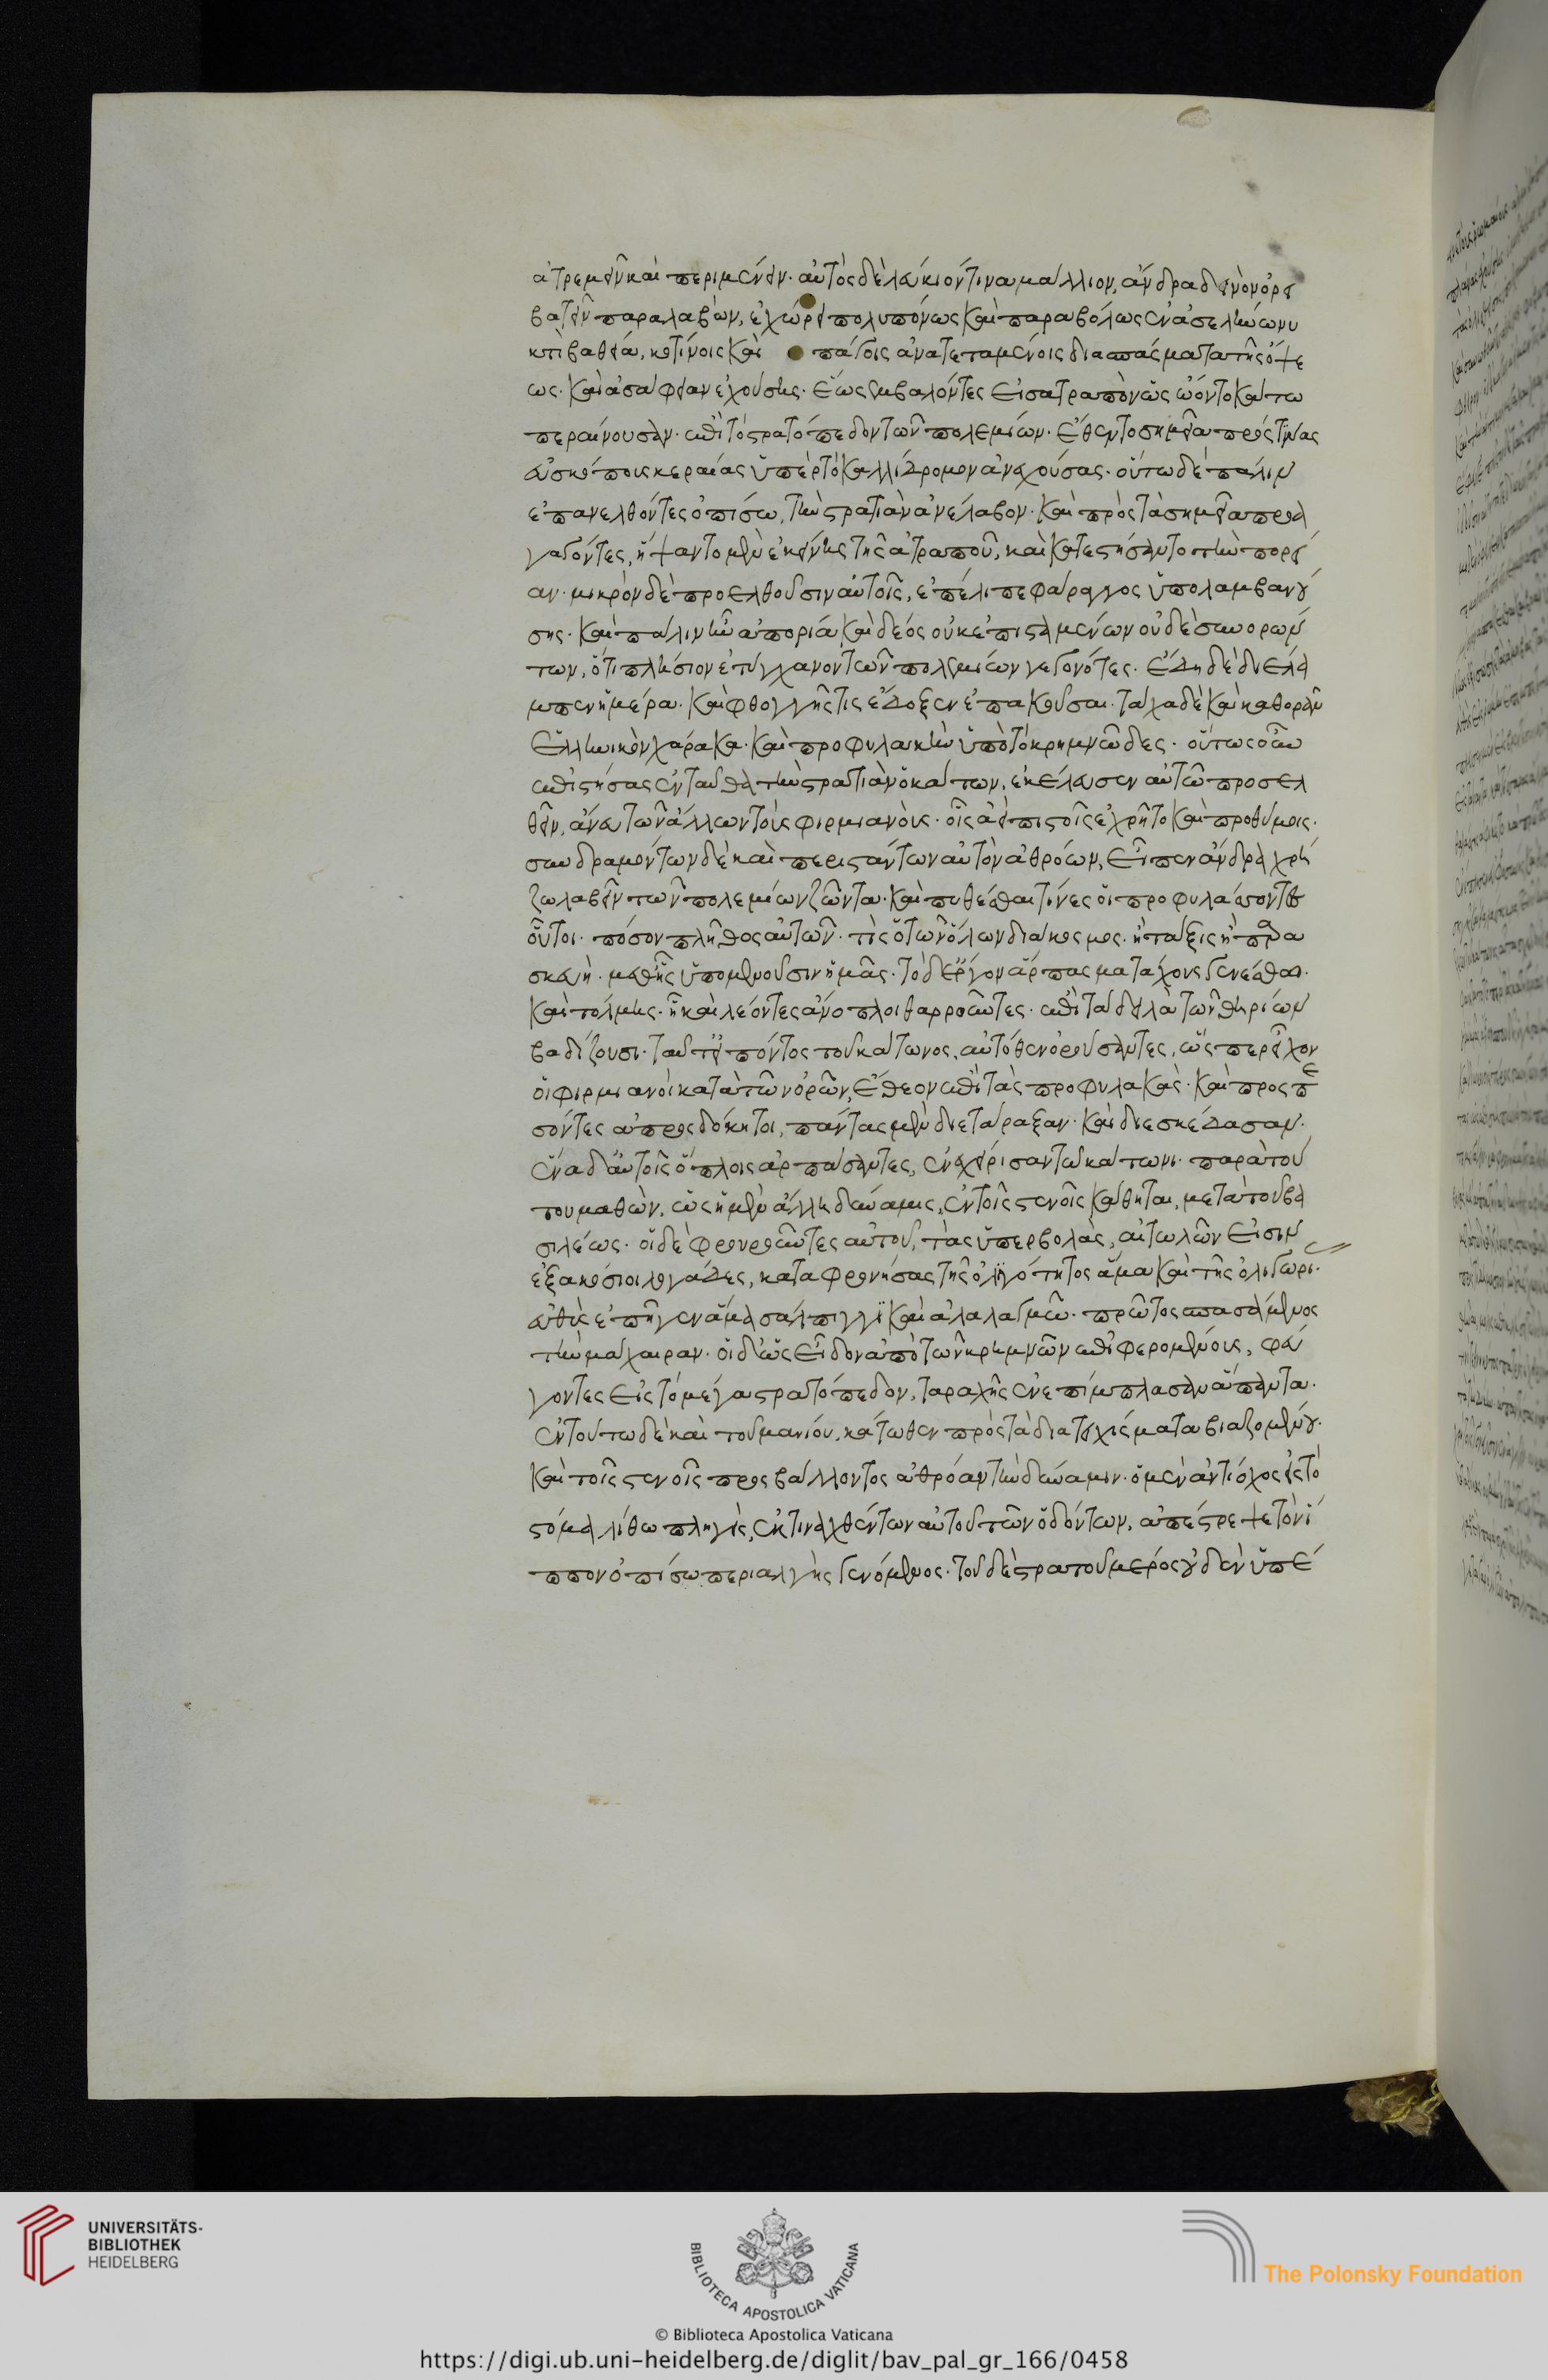 ἀτρεμεῖν καὶ περιμένειν. αὐτὸς δὲ λεύκιόν τινα μάλλιον, ἄνδρα δεινὸν ὀρει
βατεῖν παραλαβὼν, ἐχώρει πολυπόνως καὶ παραβόλως ἐν ἀσελήνω νυ
κτὶ βαθεία, κοτίνοις καὶ πάγοις ἀνατεταμένοις διασπάσματα τῆς ὄψε
ως. καὶ ἀσάφειαν ἐχούσης. ἕως ἐμβαλόντες εἰς ἀτραπὸν ὡς ὤοντο κάτω
περαίνουσαν. ἐπὶ τὸ στρατόπεδον τῶν πολεμίων. ἔθεντο σημεῖα πρός τινας
εὐσκόποις κεραίας ὑπὲρ τὸ καλλίδρομον ἀνεχούσας. οὕτω δὲ πάλιν
ἐπανελθόντες ὀπίσω, τὴν στρατιὰν ἀνέλαβον. καὶ πρὸς τὰ σημεῖα προα
γαγόντες, ἥψαντο μὲν ἐκείνης τῆς ἀτραποῦ, καὶ κατεστήσαντο τὴν πορεί
αν. μικρὸν δὲ προελθοῦσιν αὐτοῖς, ἐπέλιπε φάραγγος ὑπολαμβανού
σης. καὶ πάλιν ἦν ἀπορία καὶ δέος οὐκ ἐπισταμένων οὐδὲ συνορών
των, ὅτι πλησίον ἐτύγχανον τῶν πολεμίων γεγονότες. ἤδη δὲ διέλα
μπεν ἡμέρα. καὶ φθογγῆς τις ἔδοξεν ἐπακοῦσαι. τάχα δὲ καὶ καθορᾶν
ἑλληνικὸν χάρακα. καὶ προφυλακὴν ὑπὸ τὸ κρημνῶδες. οὕτως οὖν
ἐπιστήσας ἐνταῦθα τὴν στρατιὰν ὁ κάτων, ἐκέλευσεν αὐτῶ προσελ
θεῖν, ἄνευ τῶν ἄλλων τοὺς φιρμιανοὺς. οἷς ἀεὶ πιστοῖς ἐχρῆτο καὶ προθύμοις.
συνδραμόντων δὲ καὶ περιστάντων αὐτὸν ἀθρόων, εἶπεν ἄνδρα χρή
ζω λαβεῖν τῶν πολεμίων ζῶντα. καὶ πυθέσθαι τίνες οἱ προφυλάσσοντες
οὗτοι. πόσον πλῆθος αὐτῶν. τίς ὁ τῶν ὅλων διάκοσμος. ἢ τάξις ἢ παρα
σκευὴ. μεθ' ἧς ὑπομένουσιν ἡμᾶς. τὸ δ' ἔργον ἅρπασμα τάχους γενέσθαι.
καὶ τόλμης. ἧ καὶ λέοντες ἄνοπλοι θαρροῦντες. ἐπὶ τὰ δειλὰ τῶν θηρίων
βαδίζουσι. ταῦτ' εἰπόντος τοῦ κάτωνος, αὐτόθεν ὀρούσαντες, ὥσπερ εἶχον
οἱ φιρμιανοὶ κατὰ τῶν ὀρῶν, ἔθεον ἐπὶ τὰς προφυλακάς. καὶ προσπε
σόντες ἀπροσδόκητοι, πάντας μὲν διετάραξαν. καὶ διεσκέδασαν.
ἕνα δ' αὐτοῖς ὅπλοις ἁρπάσαντες, ἐνεχείρισαν τῶ κάτωνι. παρὰ τού
του μαθὼν, ὡς ἡ μὲν ἄλλη δύναμις, ἐν τοῖς στενοῖς κάθηται, μετὰ τοῦ βα
σιλέως. οἱ δὲ φρουροῦντες αὐτοῦ, τὰς ὑπερβολὰς, αἰτωλῶν εἰσιν
ἑξακόσιοι λογάδες, καταφρονήσας τῆς ὀλιγότητος ἅμα καὶ τῆς ὀλιγωρί.
εὐθὺς ἐπῆγεν ἅμα σάλπιγγι καὶ ἀλαλαγμῶ. πρῶτος σπασάμενος
τὴν μάχαιραν. οἱ δ' ὡς εἶδον ἀπὸ τῶν κρημνῶν ἐπιφερομένους, φεύ
γοντες εἰς τὸ μέγα στρατόπεδον, ταραχῆς ἐνεπίμπλασαν ἅπαντα.
ἐν τούτω δὲ καὶ τοῦ μανίου, κάτωθεν πρὸς τὰ διατειχίσματα βιαζομένου.
καὶ τοῖς στενοῖς προσβάλλοντος ἀθρόαν τὴν δύναμιν. ὁ μὲν ἀντίοχος εἰς τὸ
στόμα λίθω πληγεὶς, ἐκτιναχθέντων αὐτοῦ τῶν ὀδόντων, ἀπέστρεψε τὸν ἵ
ππον ὀπίσω περιαλγὴς γενόμενος. τοῦ δὲ στρατοῦ μέρος οὐδὲν ὑπέ
UNIVERSITÄTS-
BIBLIOTHEK
HEIDELBERG
BIBLIOTECA APOSTOLICA VATICANA
The Polonsky Foundation
© Biblioteca Apostolica Vaticana
https://digi.ub.uni-heidelberg.de/diglit/bav_pal_gr_166/0458